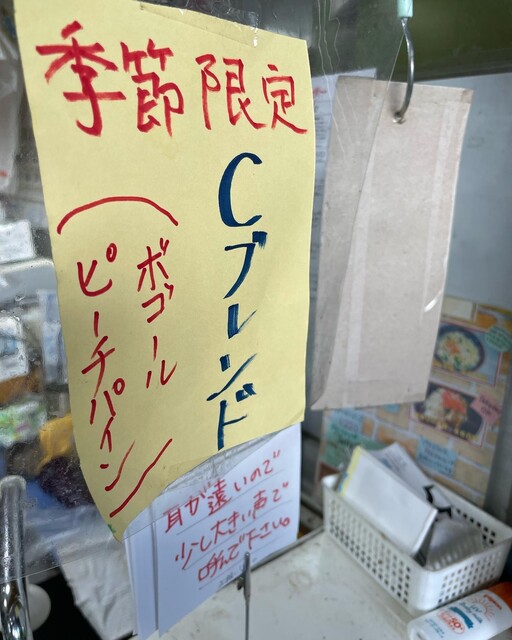 季節限定
Cブレンド
（ボゴール
ピーチパイン）
耳が遠いので
少し大きい声で
呼んで下さい。